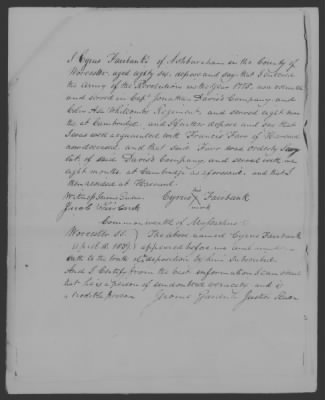 I Cyrus Fairbanks of Ashburnham in the County of
Worcester, aged eighty six, depose and say that I entered
the Army of the Revolution in the year 1775. was enlisted
and served in Capt Jonathan Davis's Company, and
Colo Asa Whitcombs Regiment, and served eight mon
ths at Cambridge, and I further depose and say that
I was well acquainted with Francis Farr of Harvard
now deceased, and that said Farr was orderly Serg
of said Davis's Company, and served with me
eight months, at Cambridge as aforesaid, and that I
then resided at Harvard.
Witness Jerome Cyrus his Fairbank
Jacob Clark mark
Commonwealth of Massachusetts
Worcester SS. The above named Cyrus Fairbank
April 18. 1837 appeared before me and made
oath to the truth of deposition by him Subscribed
And I Certify from the best information I can obtain
that he is a person of undoubted veracity and is
a credible person Jerome Justice Peace